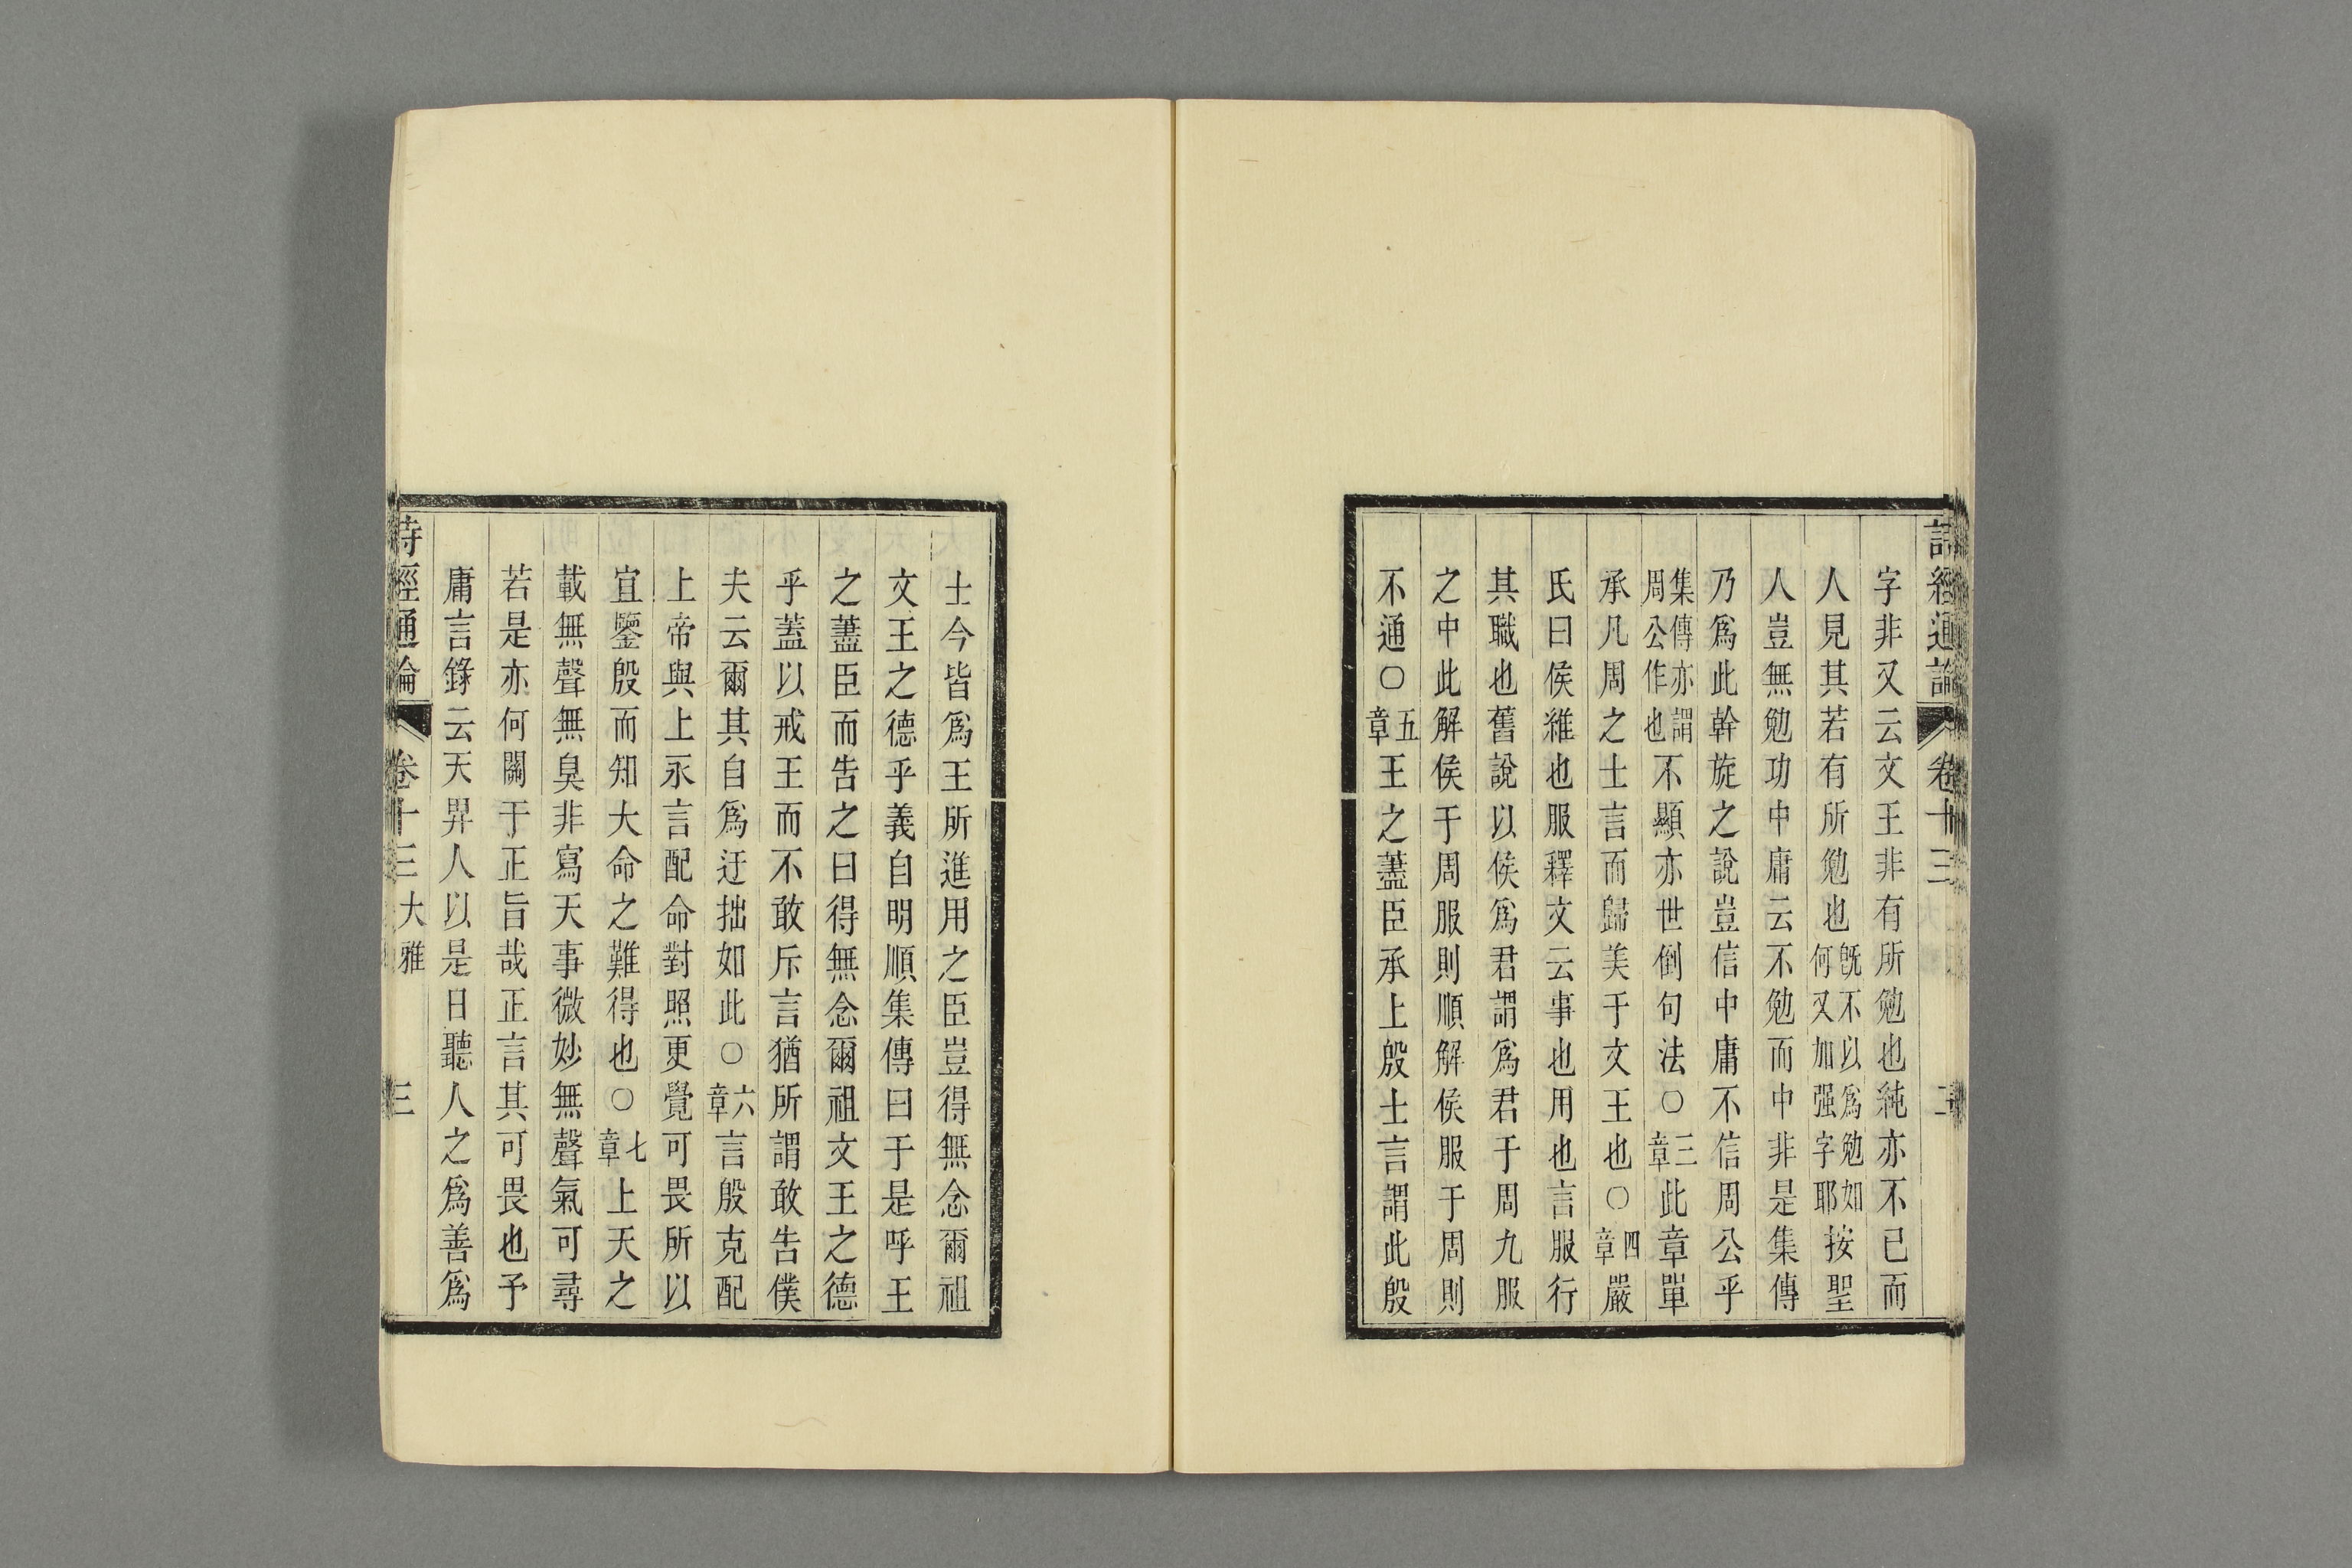 詩經通論 卷十三 二
字非又云文王非有所勉也純亦不已而
人見其若有所勉也旣不以爲勉如何又加强字耶按聖
人豈無勉功中庸云不勉而中非是集傳
乃爲此幹旋之說豈信中庸不信周公乎
集傳亦謂周公作也不顯亦世倒句法○三章此章單
承凡周之士言而歸美于文王也○四章嚴
氏曰侯維也服釋文云事也用也言服行
其職也舊說以侯爲君謂爲君于周九服
之中此解侯于周服則順解侯服于周則
不通○五章王之藎臣承上殷士言謂此殷
士今皆爲王所進用之臣豈得無念爾祖
文王之德乎義自明順集傳曰于是呼王
之藎臣而告之曰得無念爾祖文王之德
乎蓋以戒王而不敢斥言猶所謂敢告僕
夫云爾其自爲迂拙如此○六章言殷克配
上帝與上永言配命對照更覺可畏所以
宜鑒殷而知大命之難得也○七章上天之
載無聲無臭非寫天事微妙無聲氣可尋
若是亦何關于正旨哉正言其可畏也予
庸言錄云天畀人以是日聽人之爲善爲
詩經通論 卷十三 大雅 三